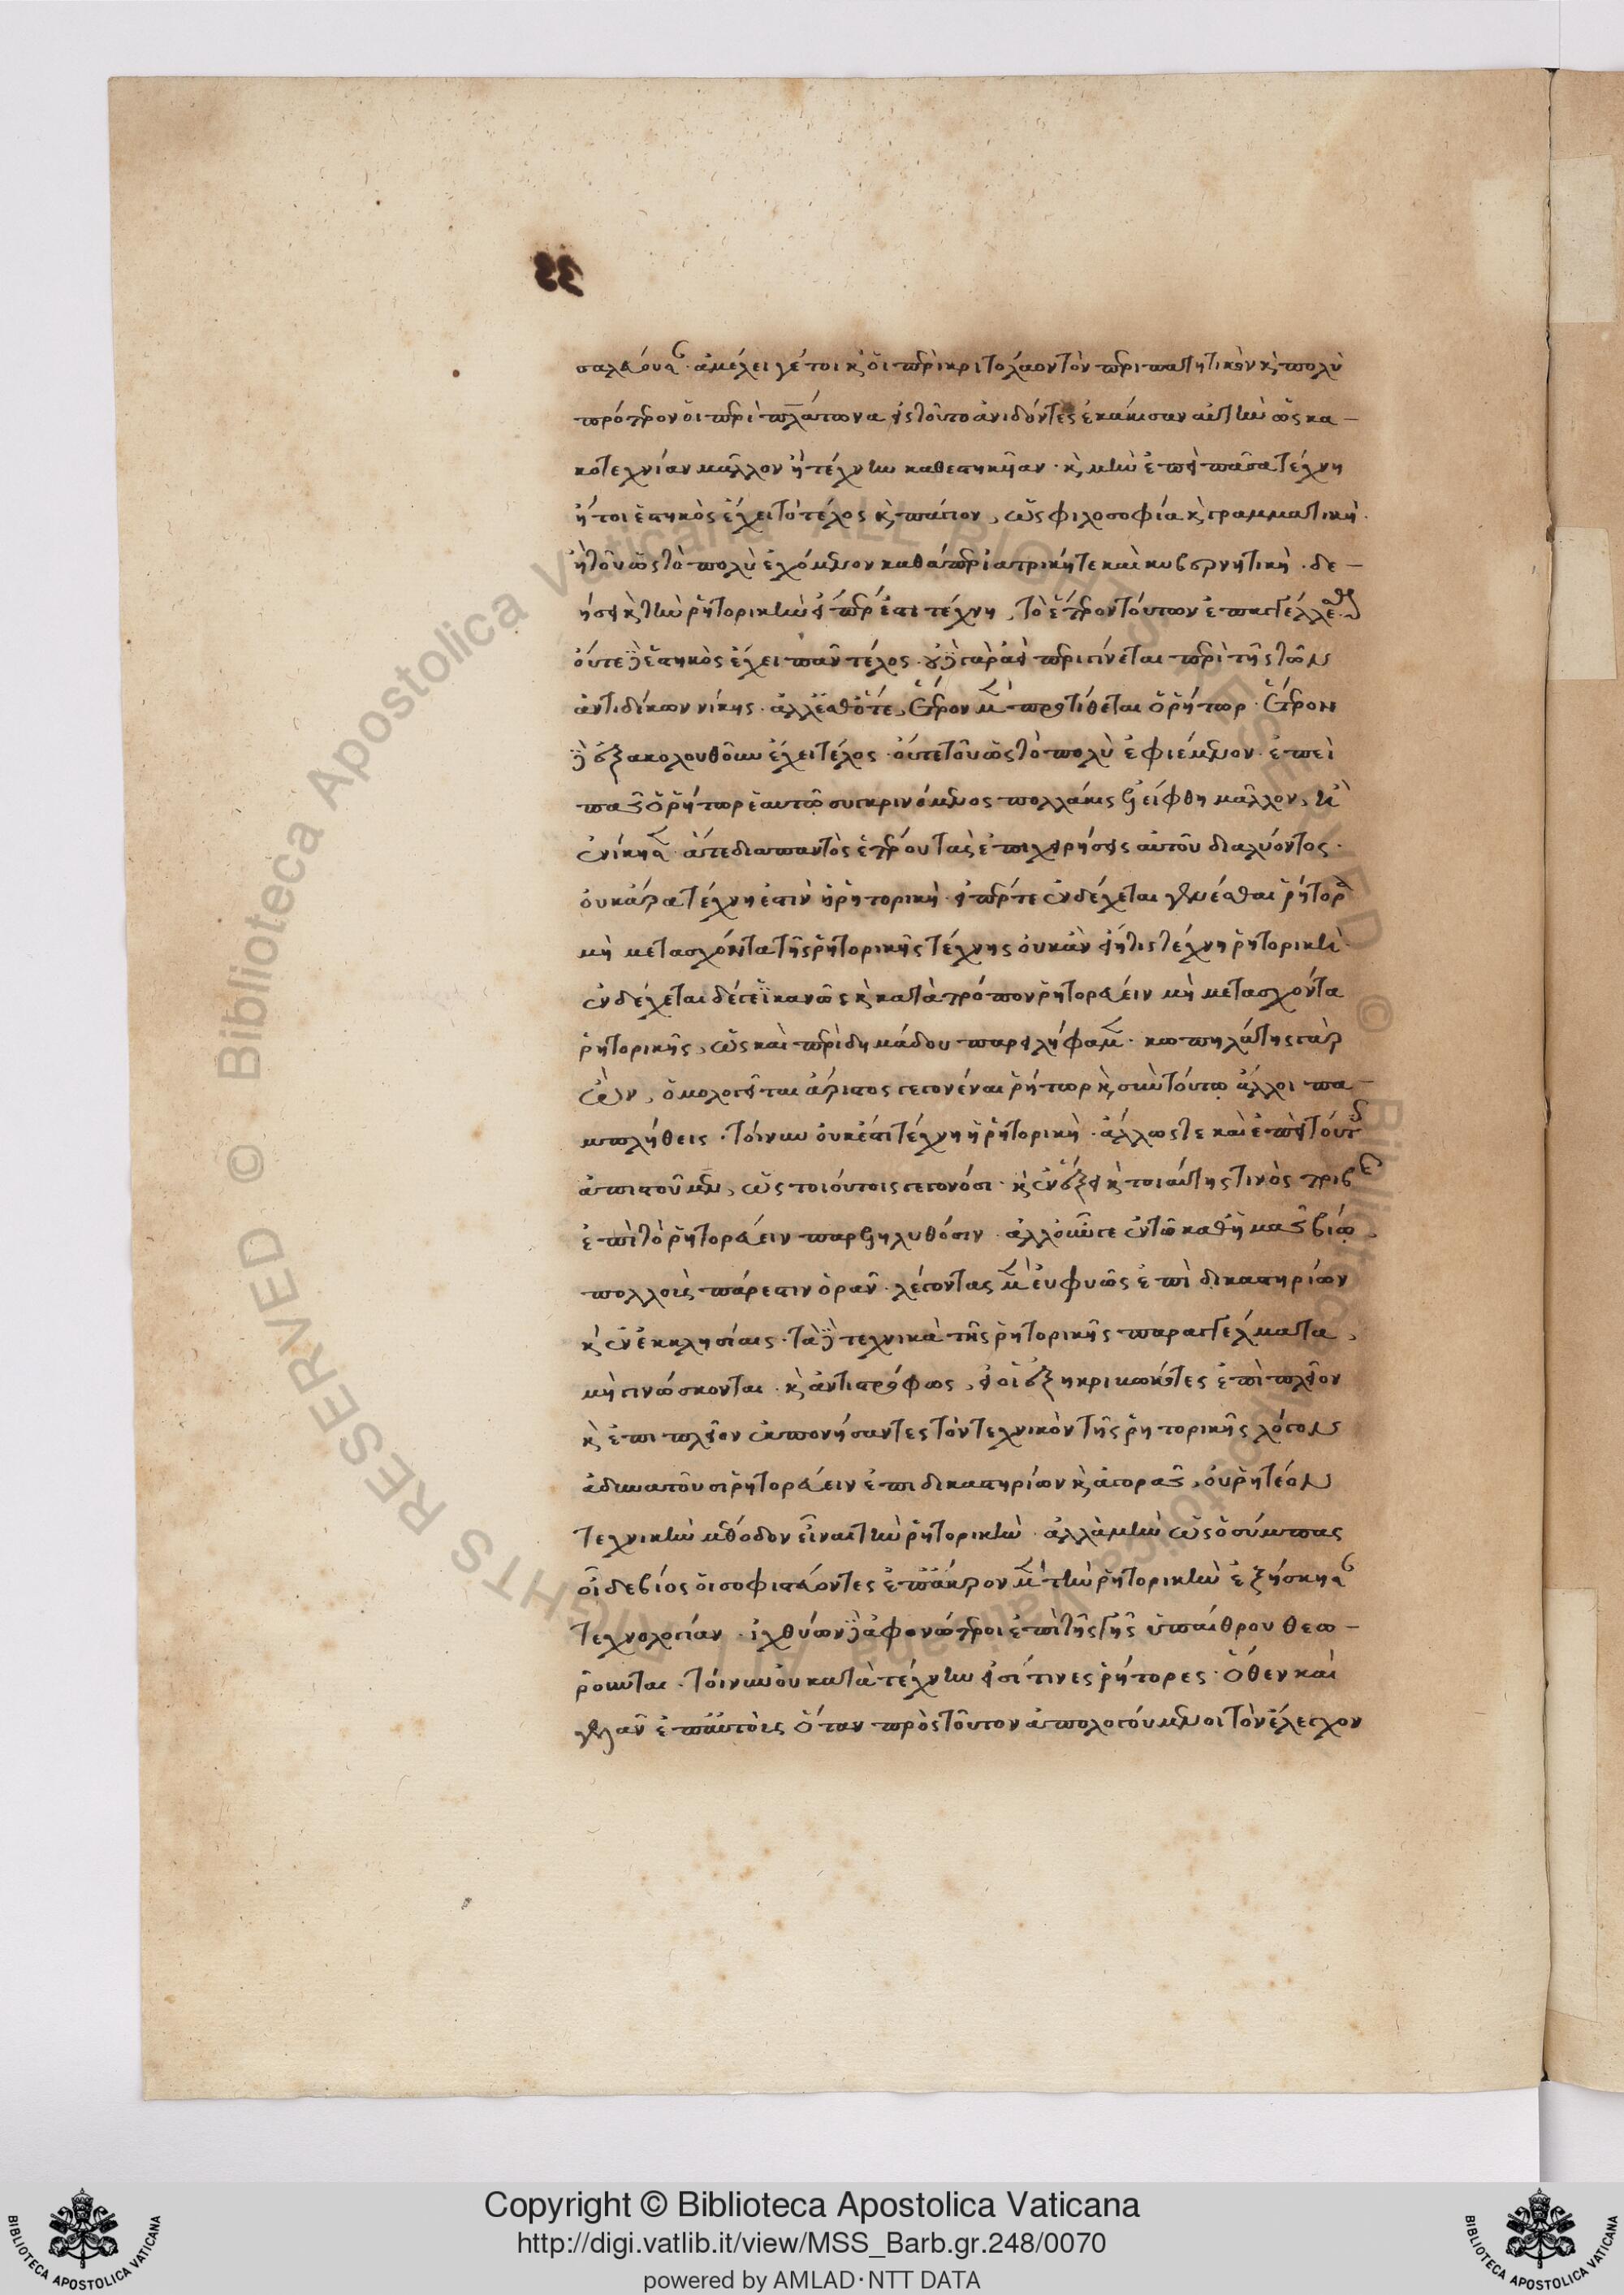 σαλεύου(σιν). ἀμέλει γέ τοι κ(αὶ) οἱ περὶ κριτόλαον τὸν περιπατητικὸν κ(αὶ) πολὺ
πρότερον οἱ περὶ πλάτωνα εἰς τοῦτο ἀπιδόντες ἐκάκισαν αὐτὴν ὡς κα-
κοτεχνίαν μᾶλλον ἢ τέχνην καθεστηκῖαν. κ(αὶ) μὴν ἐπεὶ πᾶσα τέχνη
ἤτοι ἑστηκὸς ἔχει τὸ τέλος κ(αὶ) πάγιον, ὡς φιλοσοφία κ(αὶ) γραμματική.
ἢ τοῦ ὡς τὸ πολὺ ἐχόμενον καθάπερ ἰατρική τε καὶ κυβερνητική. δε-
ήσει κ(αὶ) τὴν ῥητορικὴν εἴπερ ἐστὶ τέχνη, τὸ ἕτερον τούτων ἐπαγγέλλεσθαι
οὔτε δὲ ἑστηκὸς ἔχει πᾶν τέλος. οὐδὲ γὰρ ἀεὶ περιγίνεται περὶ τῆς τῶν
ἀντιδίκων νίκης. ἀλλ' ἔσθ' ὅτε, ἕτερον μὲν προτίθεται ὁ ῥήτωρ. ἕτερον
δὲ ἐξακολουθοῦν ἔχει τέλος. οὔτε τοῦ ὡς τὸ πολὺ ἐφιέμενον. ἐπεὶ
πᾶς ὁ ῥήτωρ ἑαυτῷ συγκρινόμενος πολλάκις ἐλείφθη μᾶλλον, ἢ
ἐνίκησεν. ἅτε διαπαντὸς ἑτέρου τὰς ἐπιχειρήσεις αὐτοῦ διαλύοντος.
οὐκ ἄρα τέχνη ἐστὶν ἡ ῥητορική. εἴπερ τε ἐνδέχεται γενέσθαι ῥήτορα
μὴ μετασχόντα τῆς ῥητορικῆς τέχνης οὐκ ἂν εἴη τις τέχνη ῥητορική.
ἐνδέχεται δέ γε ἱκανῶς κ(αὶ) κατὰ τρόπον ῥητορεύειν μὴ μετασχόντα
ῥητορικῆς, ὡς καὶ περὶ δημάδου παρειλήφαμεν. κωπηλάτης γὰρ
ὢν, ὁμολογεῖται ἄριστος γεγονέναι ῥήτωρ κ(αὶ) σὺν τούτῳ ἄλλοι πα-
μπλήθεις. τοίνυν οὐκ ἔστι τέχνη ἡ ῥητορική. ἄλλως τε καὶ ἐπεὶ τούτοις
ἀπιστοῦμεν, ὡς τοιούτοις γεγονόσι. κ(αὶ) ἐν ἕξει κ(αὶ) τοιαύτης τινὸς τριβῆς
ἐπὶ τὸ ῥητορεύειν παρεληλυθόσιν. ἀλλ' οὖν γε ἐν τῷ καθ' ἡμᾶς βίῳ,
πολλοὺς πάρεστιν ὁρᾶν. λέγοντας μὲν εὐφυῶς ἐπὶ δικαστηρίων
κ(αὶ) ἐν ἐκκλησίαις. τὰ δὲ τεχνικὰ τῆς ῥητορικῆς παραγγέλματα,
μὴ γινώσκονται. κ(αὶ) ἀντιστρόφως, εἰ οἱ ἐξηκριβωκότες ἐπὶ πλεῖον
κ(αὶ) ἐπιπλεῖον ἐκπονήσαντες τὸν τεχνικὸν τῆς ῥητορικῆς λόγον
ἀδυνατοῦσι ῥητορεύειν ἐπὶ δικαστηρίων κ(αὶ) ἀγορᾶς, οὐ ῥητέον
τεχνικὴν μέθοδον εἶναι τὴν ῥητορικήν. ἀλλὰ μὴν ὡς ὁ σύμπας
οἶδε βίος οἱ σοφιστεύοντες ἐπ' ἄκρον μὲν τὴν ῥητορικὴν ἐξήσκησαν
τεχνολογίαν. ἰχθύων δὲ ἀφωνότεροι ἐπὶ τῆς γῆς ὑπαίθρου θεω-
ροῦνται. τοίνυν οὐ κατὰ τέχνην εἰσί τινες ῥήτορες. ὅθεν καὶ
γελᾶν ἐπ' αὐτοῖς ὅταν πρὸς τοῦτον ἀπολογούμενοι τὸν ἔλεγχον
Copyright © Biblioteca Apostolica Vaticana
http://digi.vatlib.it/view/MSS_Barb.gr.248/0070
powered by AMLAD·NTT DATA